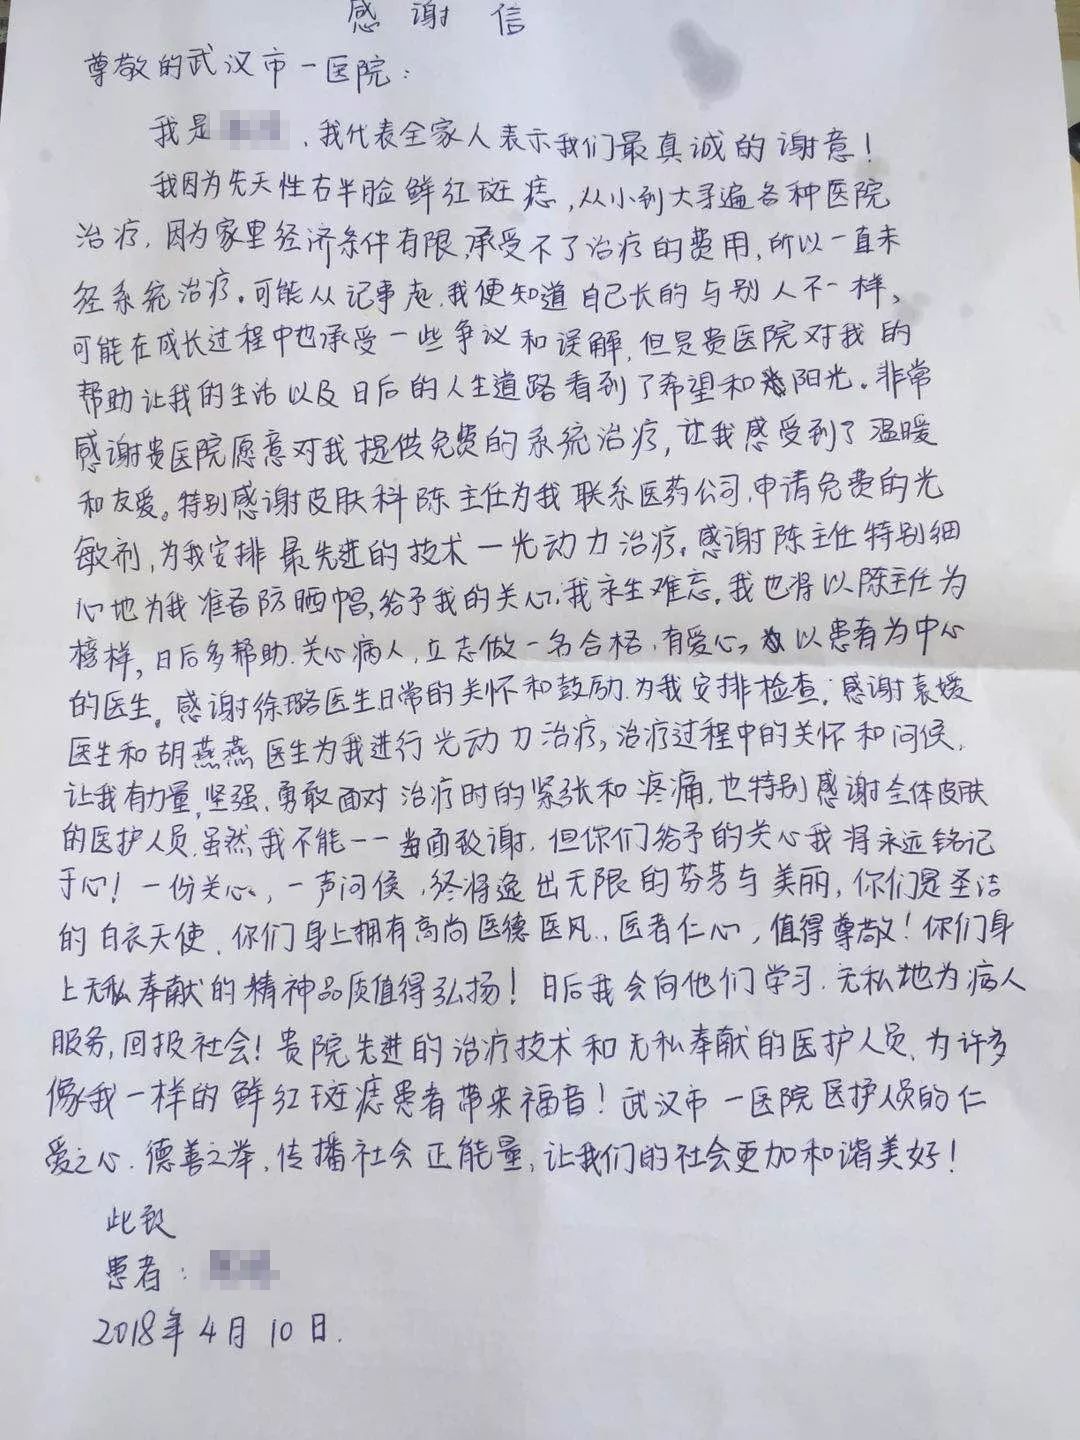 感谢信
尊敬的武汉市一医院：
我是，我代表全家人表示我们最真诚的谢意！
我因为先天性右半脸鲜红斑痣，从小到大寻遍各种医院
治疗，因为家里经济条件有限，承受不了治疗的费用，所以一直未
经系统治疗。可能从记事起，我便知道自己长的与别人不一样，
可能在成长过程中也承受一些争议和误解，但是贵医院对我的
帮助让我的生活以及日后的人生道路看到了希望和阳光。非常
感谢贵医院愿意对我提供免费的系统治疗，让我感受到了温暖
和友爱。特别感谢皮肤科陈主任为我联系医药公司，申请免费的光
敏剂，为我安排最先进的技术一光动力治疗。感谢陈主任特别细
心地为我准备防晒帽，给予我的关心，我永生难忘。我也将以陈主任为
榜样，日后多帮助、关心病人，立志做一名合格、有爱心，以患者为中心
的医生。感谢徐璐医生日常的关怀和鼓励，为我安排检查；感谢袁媛
医生和胡燕燕医生为我进行光动力治疗，治疗过程中的关怀和问候，
让我有力量，坚强、勇敢面对治疗时的紧张和疼痛，也特别感谢全体皮肤
的医护人员，虽然我不能一一当面致谢，但你们给予的关心我将永远铭记
于心！一份关心，一声问候，终将逸出无限的芬芳与美丽，你们是圣洁
的白衣天使，你们身上拥有高尚医德医风，医者仁心，值得尊敬！你们身
上无私奉献的精神品质值得弘扬！日后我会向他们学习，无私地为病人
服务，回报社会！贵院先进的治疗技术和无私奉献的医护人员，为许多
像我一样的鲜红斑痣患者带来福音！武汉市一医院医护人员的仁
爱之心、德善之举，传播社会正能量，让我们的社会更加和谐美好！
此致
患者：
2018年4月10日.